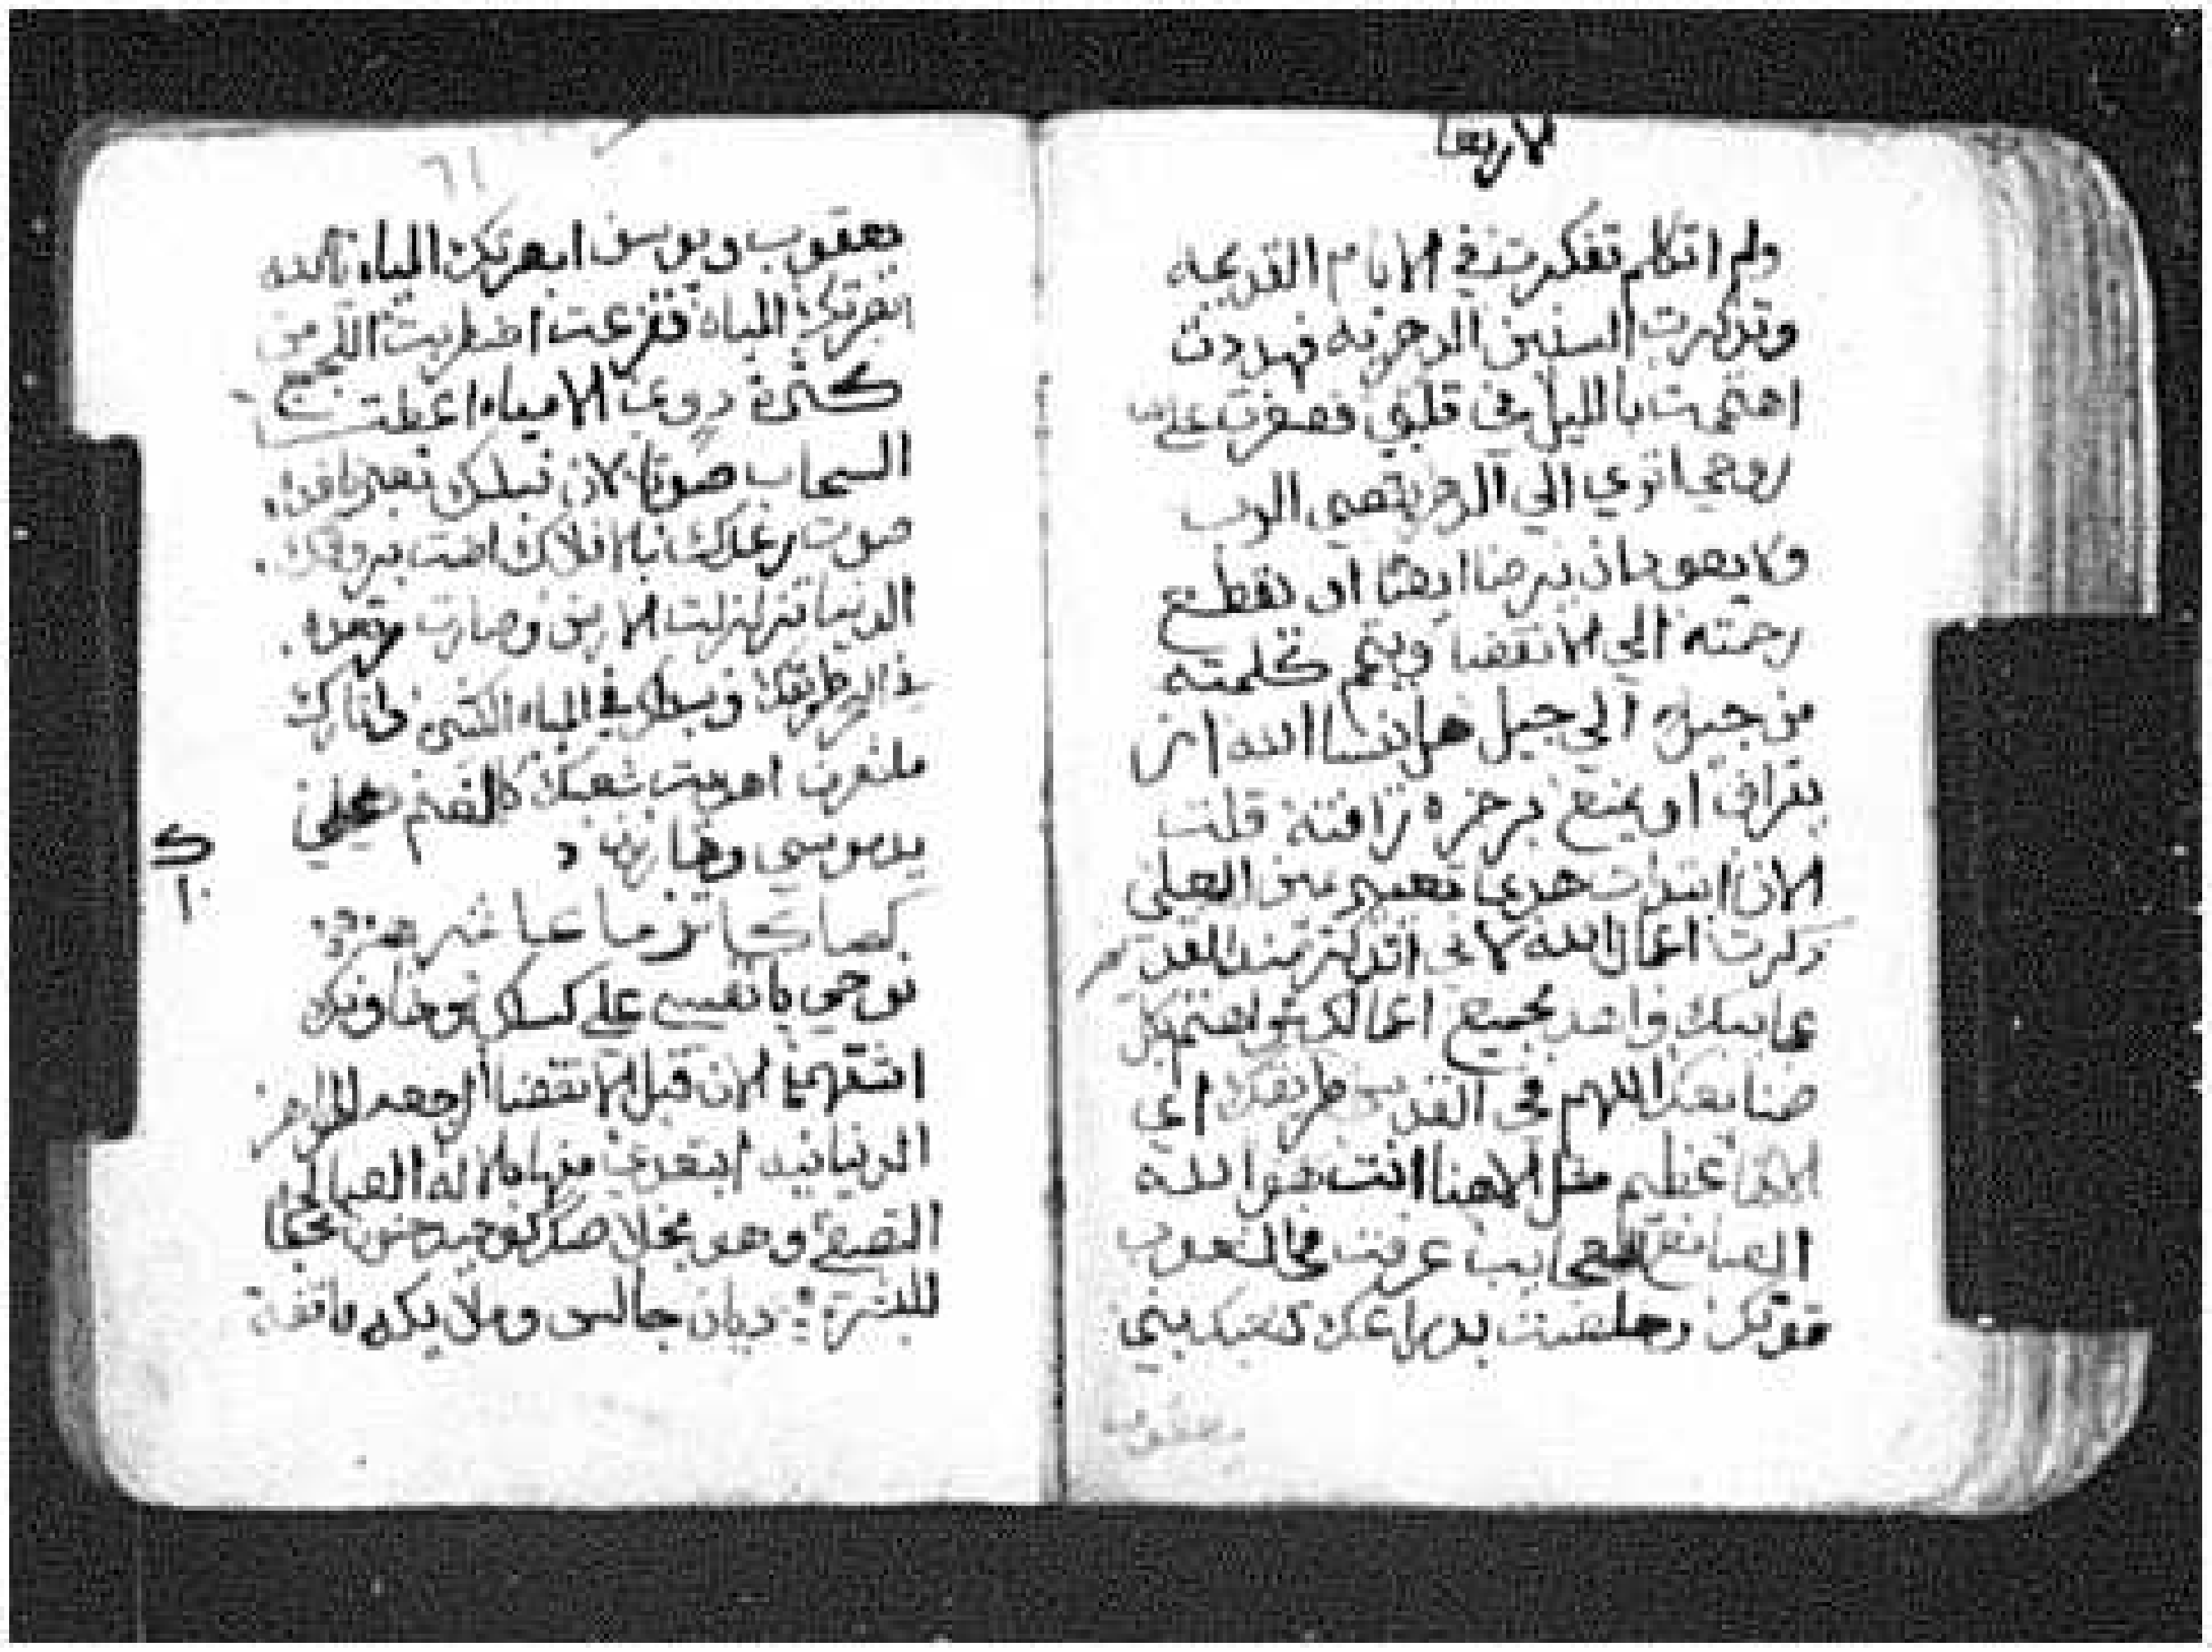 الاربعا
ولم اتكلم تفكرت في الايام القديمه
وتذكرت السنين الدهريه فهددت
اهتميت بالليل في قلبي فصفرت علي
روحي اتري الي الدهر يقصي الرب
ولا يعود ان يرضا ايضا او يقطع
رحمته الي الانقضا ويتم كلمته
من جيل الي جيل هل ينسا الله ان
يتراف او يمنع برجزه رافته قلت
الان ابتدات هدي تغيير يمين العلي
ذكرت اعمال الله لاني اتذكر منذ القدم
عجايبك واهد بجميع اعمالك واهتم بكل
صنايعك اللهم في القدس طريقك اي
الاها عظيم مثل الاهنا انت هو الله
الصانع العجايب عرفت في الشعوب
قوتك وخلصت بدراعك شعبك بني
يعقوب
61
يعقوب ويوسف ابصرتك المياه يالله
ابصرتك المياه ففزعت اضطربت اللجج من
كثرة دوي الامياه اعطت
السحاب صوتا لان نبلك تعبر نافذه
صوت رعدك بالافلاك اضت بروقك
الدنيا تزلزلت الارض وصارت مرتعده
في البحر طريقك وسبلك في المياه الكثيره واثارك
ما تعرف اهديت شعبك كالغنم علي
يد موسي وهارون
ك
نوحي يا نفسي علي كسلك نوحا وبكا
الان قبل الانقضا
الربانيه اصرخي منها يا الاه الصالح
للبشر ديان جالس وملايكه واقفة